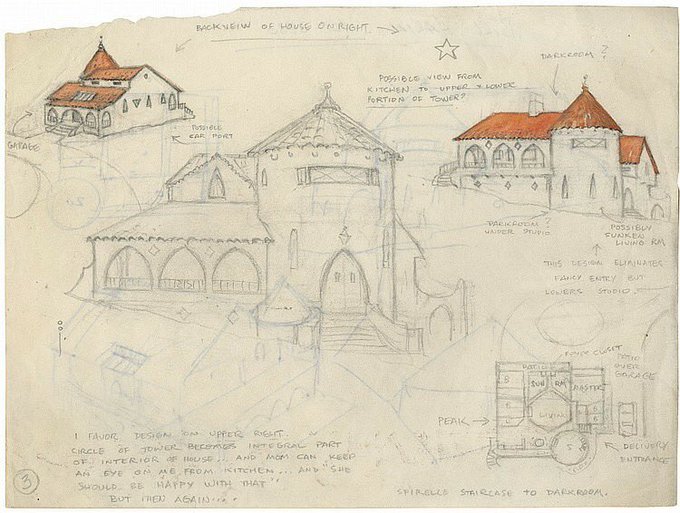 BACK VEIW OF HOUSE ON RIGHT.
DARKROOM?
POSSIBLE VIEW FROM
KITCHEN TO UPPER & LOWER
PORTION OF TOWER?
POSSIBLE
CAR PORT
GARAGE
DARKROOM?
UNDER STUDIO
POSSIBLY
SUNKEN
LIVING RM
THIS DESIGN ELIMINATES
FANCY ENTRY BUT
LOWERS STUDIO
FOYER CLOSET
PATIO
OVER
GARAGE
PATIO
SUN RM
MASTER
B
LIVING
PEAK
S
DELIVERY
ENTRANCE
I FAVOR DESIGN ON UPPER RIGHT
CIRCLE OF TOWER BECOMES INTEGRAL PART
OF INTERIOR OF HOUSE... AND MOM CAN KEEP
AN EYE ON ME FROM KITCHEN... AND "SHE
SHOULD BE HAPPY WITH THAT"
BUT THEN AGAIN....
SPIRELLE STAIRCASE TO DARKROOM.
3